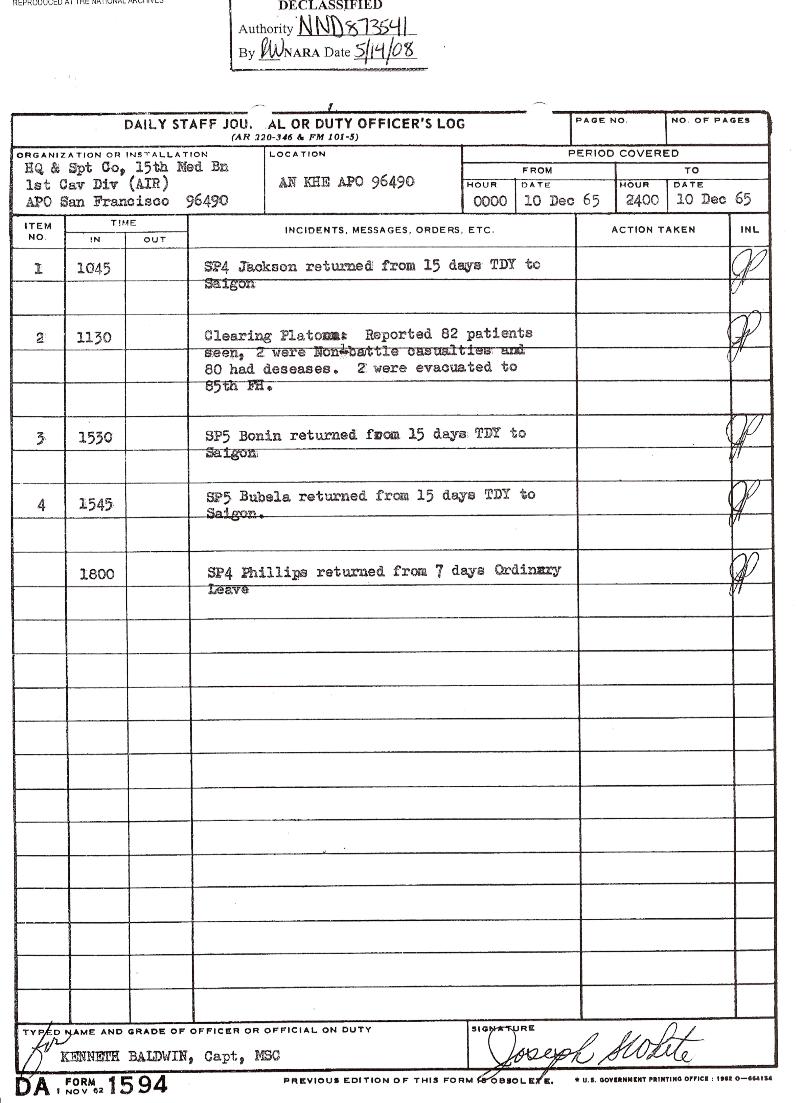 REPRODUCED AT THE NATIONAL ARCHIVES
DECLASSIFIED
Authority NND873541
By NARA Date 5/14/08
DAILY STAFF JOU. AL OR DUTY OFFICER'S LOG
(AR 220-346 & FM 101-5)
PAGE NO.
NO. OF PAGES
ORGANIZATION OR INSTALLATION
HQ & Spt Co, 15th Med Bn
1st Cav Div (AIR)
APO San Francisco 96490
LOCATION
AN KHE APO 96490
PERIOD COVERED
FROM TO
HOUR DATE HOUR DATE
0000 10 Dec 65 2400 10 Dec 65
ITEM NO. TIME IN OUT INCIDENTS, MESSAGES, ORDERS, ETC. ACTION TAKEN INL
1 1045 SP4 Jackson returned from 15 days TDY to
Saigon
2 1130 Clearing Platoon: Reported 82 patients
seen, 2 were Non-battle casualties and
80 had deseases. 2 were evacuated to
85th FH.
3 1530 SP5 Bonin returned from 15 days TDY to
Saigon
4 1545 SP5 Bubela returned from 15 days TDY to
Saigon.
1800 SP4 Phillips returned from 7 days Ordinary
Leave
TYPED NAME AND GRADE OF OFFICER OR OFFICIAL ON DUTY
for KENNETH BALDWIN, Capt, MSC
SIGNATURE
Joseph S White
DA FORM 1 NOV 62 1594
PREVIOUS EDITION OF THIS FORM IS OBSOLETE.
* U.S. GOVERNMENT PRINTING OFFICE : 1962 O—